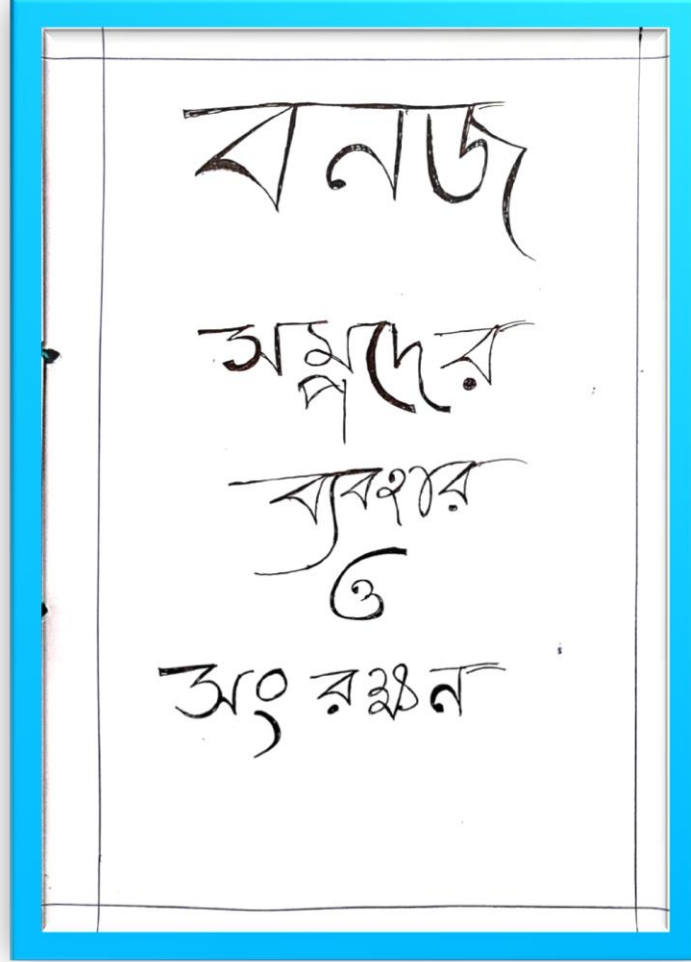 বনজ
সম্পদের
ব্যবহার
ও
সংরক্ষন